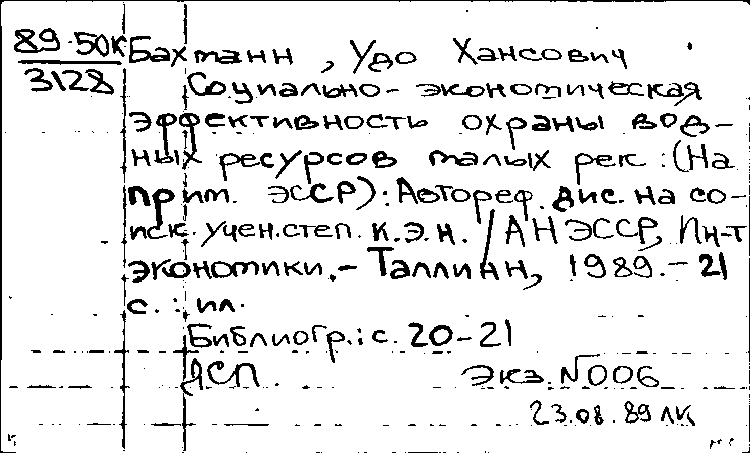 89-50К Бахманн, Удо Хансович
3128 Социально-экономическая
эффективность охраны вод-
ных ресурсов малых рек : (На
прим. ЭССР) : Автореф. дис. на со-
иск. учен. степ. к.э.н. / АН ЭССР, Ин-т
экономики. - Таллинн, 1989. - 21
с. : ил.
Библиогр.: с. 20-21
ДСП. Экз. №006
23.08.89 ЛК